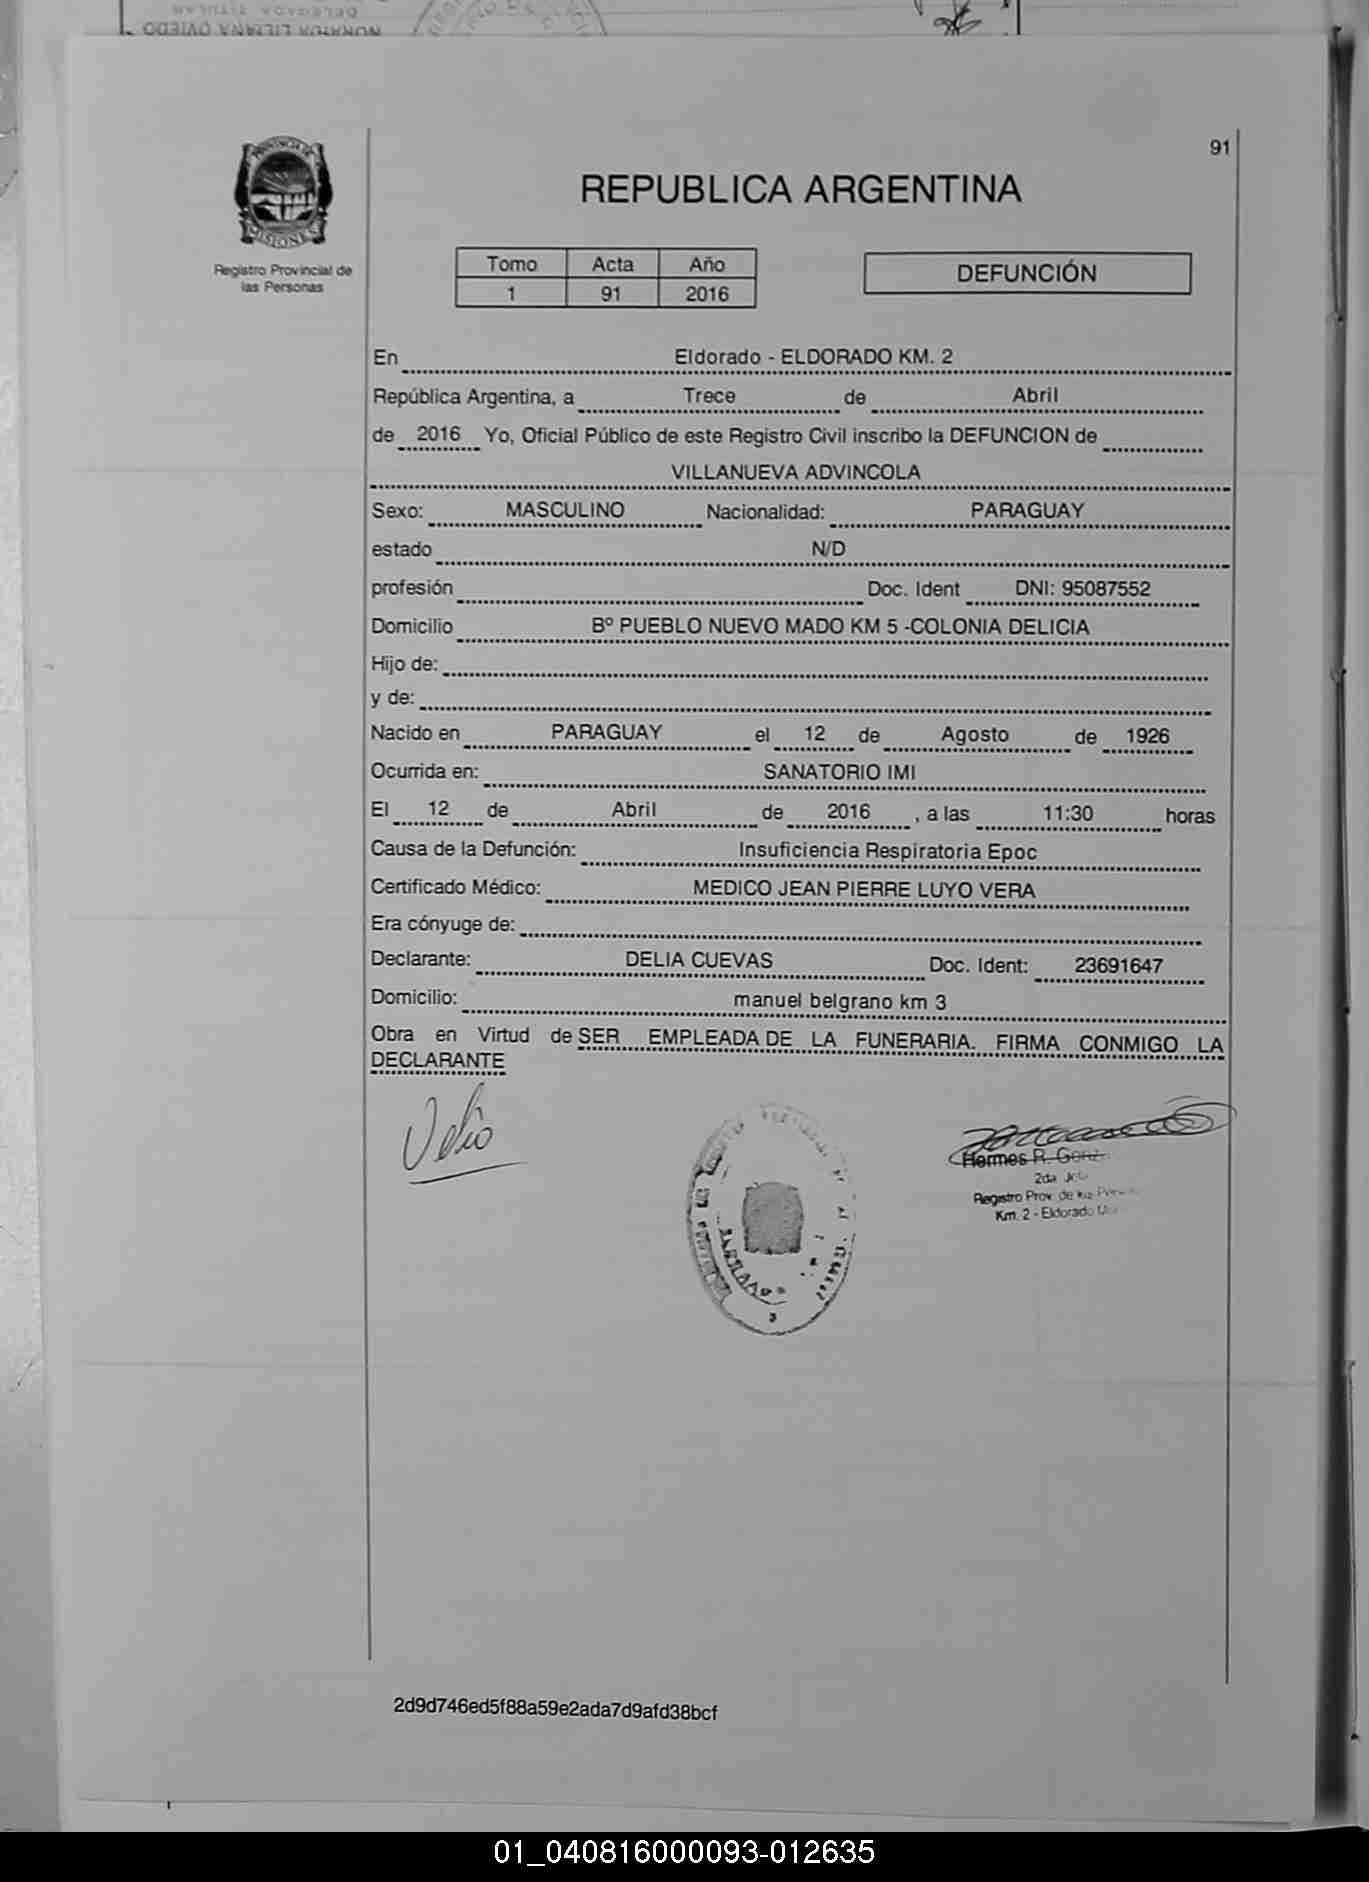 91
REPUBLICA ARGENTINA
Registro Provincial de
las Personas
Tomo Acta Año
1 91 2016
DEFUNCIÓN
En Eldorado - ELDORADO KM. 2
República Argentina, a Trece de Abril
de 2016 Yo, Oficial Público de este Registro Civil inscribo la DEFUNCION de
VILLANUEVA ADVINCOLA
Sexo: MASCULINO Nacionalidad: PARAGUAY
estado N/D
profesión Doc. Ident DNI: 95087552
Domicilio Bº PUEBLO NUEVO MADO KM 5 -COLONIA DELICIA
Hijo de:
y de:
Nacido en PARAGUAY el 12 de Agosto de 1926
Ocurrida en: SANATORIO IMI
El 12 de Abril de 2016 , a las 11:30 horas
Causa de la Defunción: Insuficiencia Respiratoria Epoc
Certificado Médico: MEDICO JEAN PIERRE LUYO VERA
Era cónyuge de:
Declarante: DELIA CUEVAS Doc. Ident: 23691647
Domicilio: manuel belgrano km 3
Obra en Virtud de SER EMPLEADA DE LA FUNERARIA. FIRMA CONMIGO LA
DECLARANTE
Hermes R.
2da.
Registro Prov. de las
Km. 2 - Eldorado
2d9d746ed5f88a59e2ada7d9afd38bcf
01_040816000093-012635